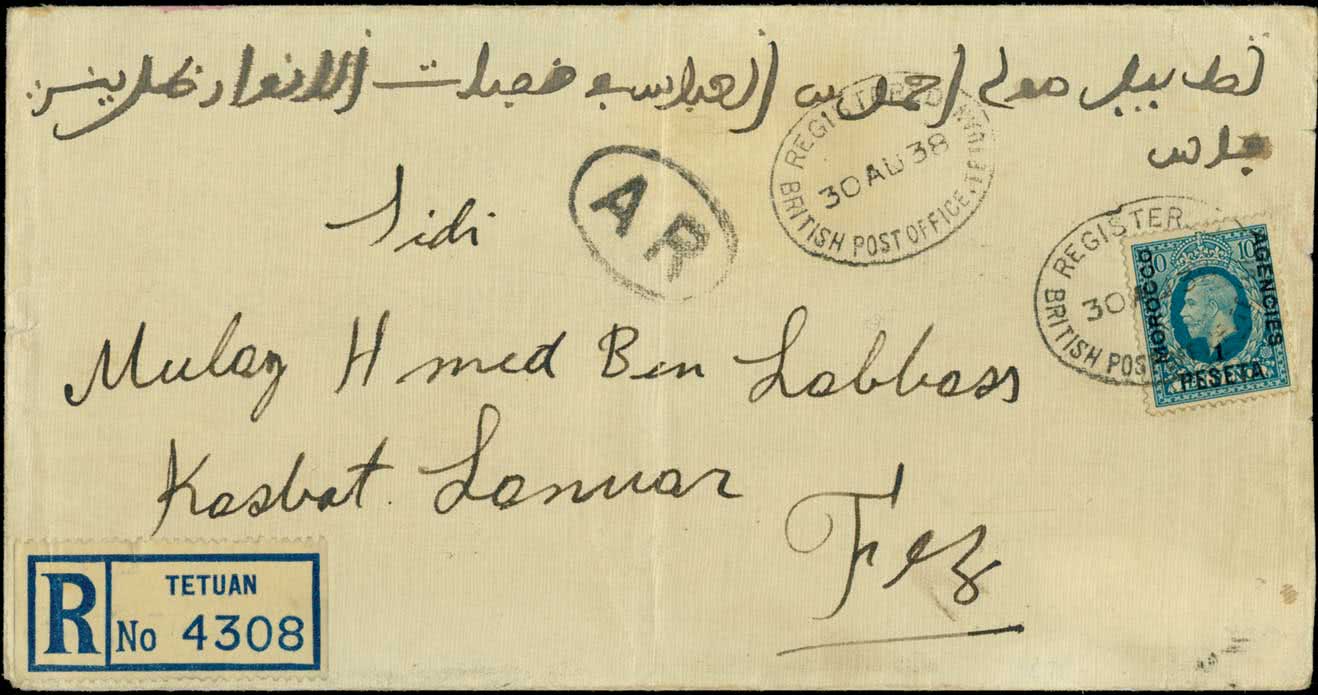 مولاي احمد بن العباس
بفاس
REGISTERED
30 AU 38
BRITISH POST OFFICE, TETUAN
AR
Sidi
REGISTER
30
BRITISH POS
10 10
MOROCCO
AGENCIES
1
PESETA
Mulay Hmed Ben Labbass
Kasbat Lanuar
Fez
R
TETUAN
No 4308